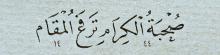 صُحْبَةُ الْكِرَامِ تَرْفَعُ الْمَقَامَ